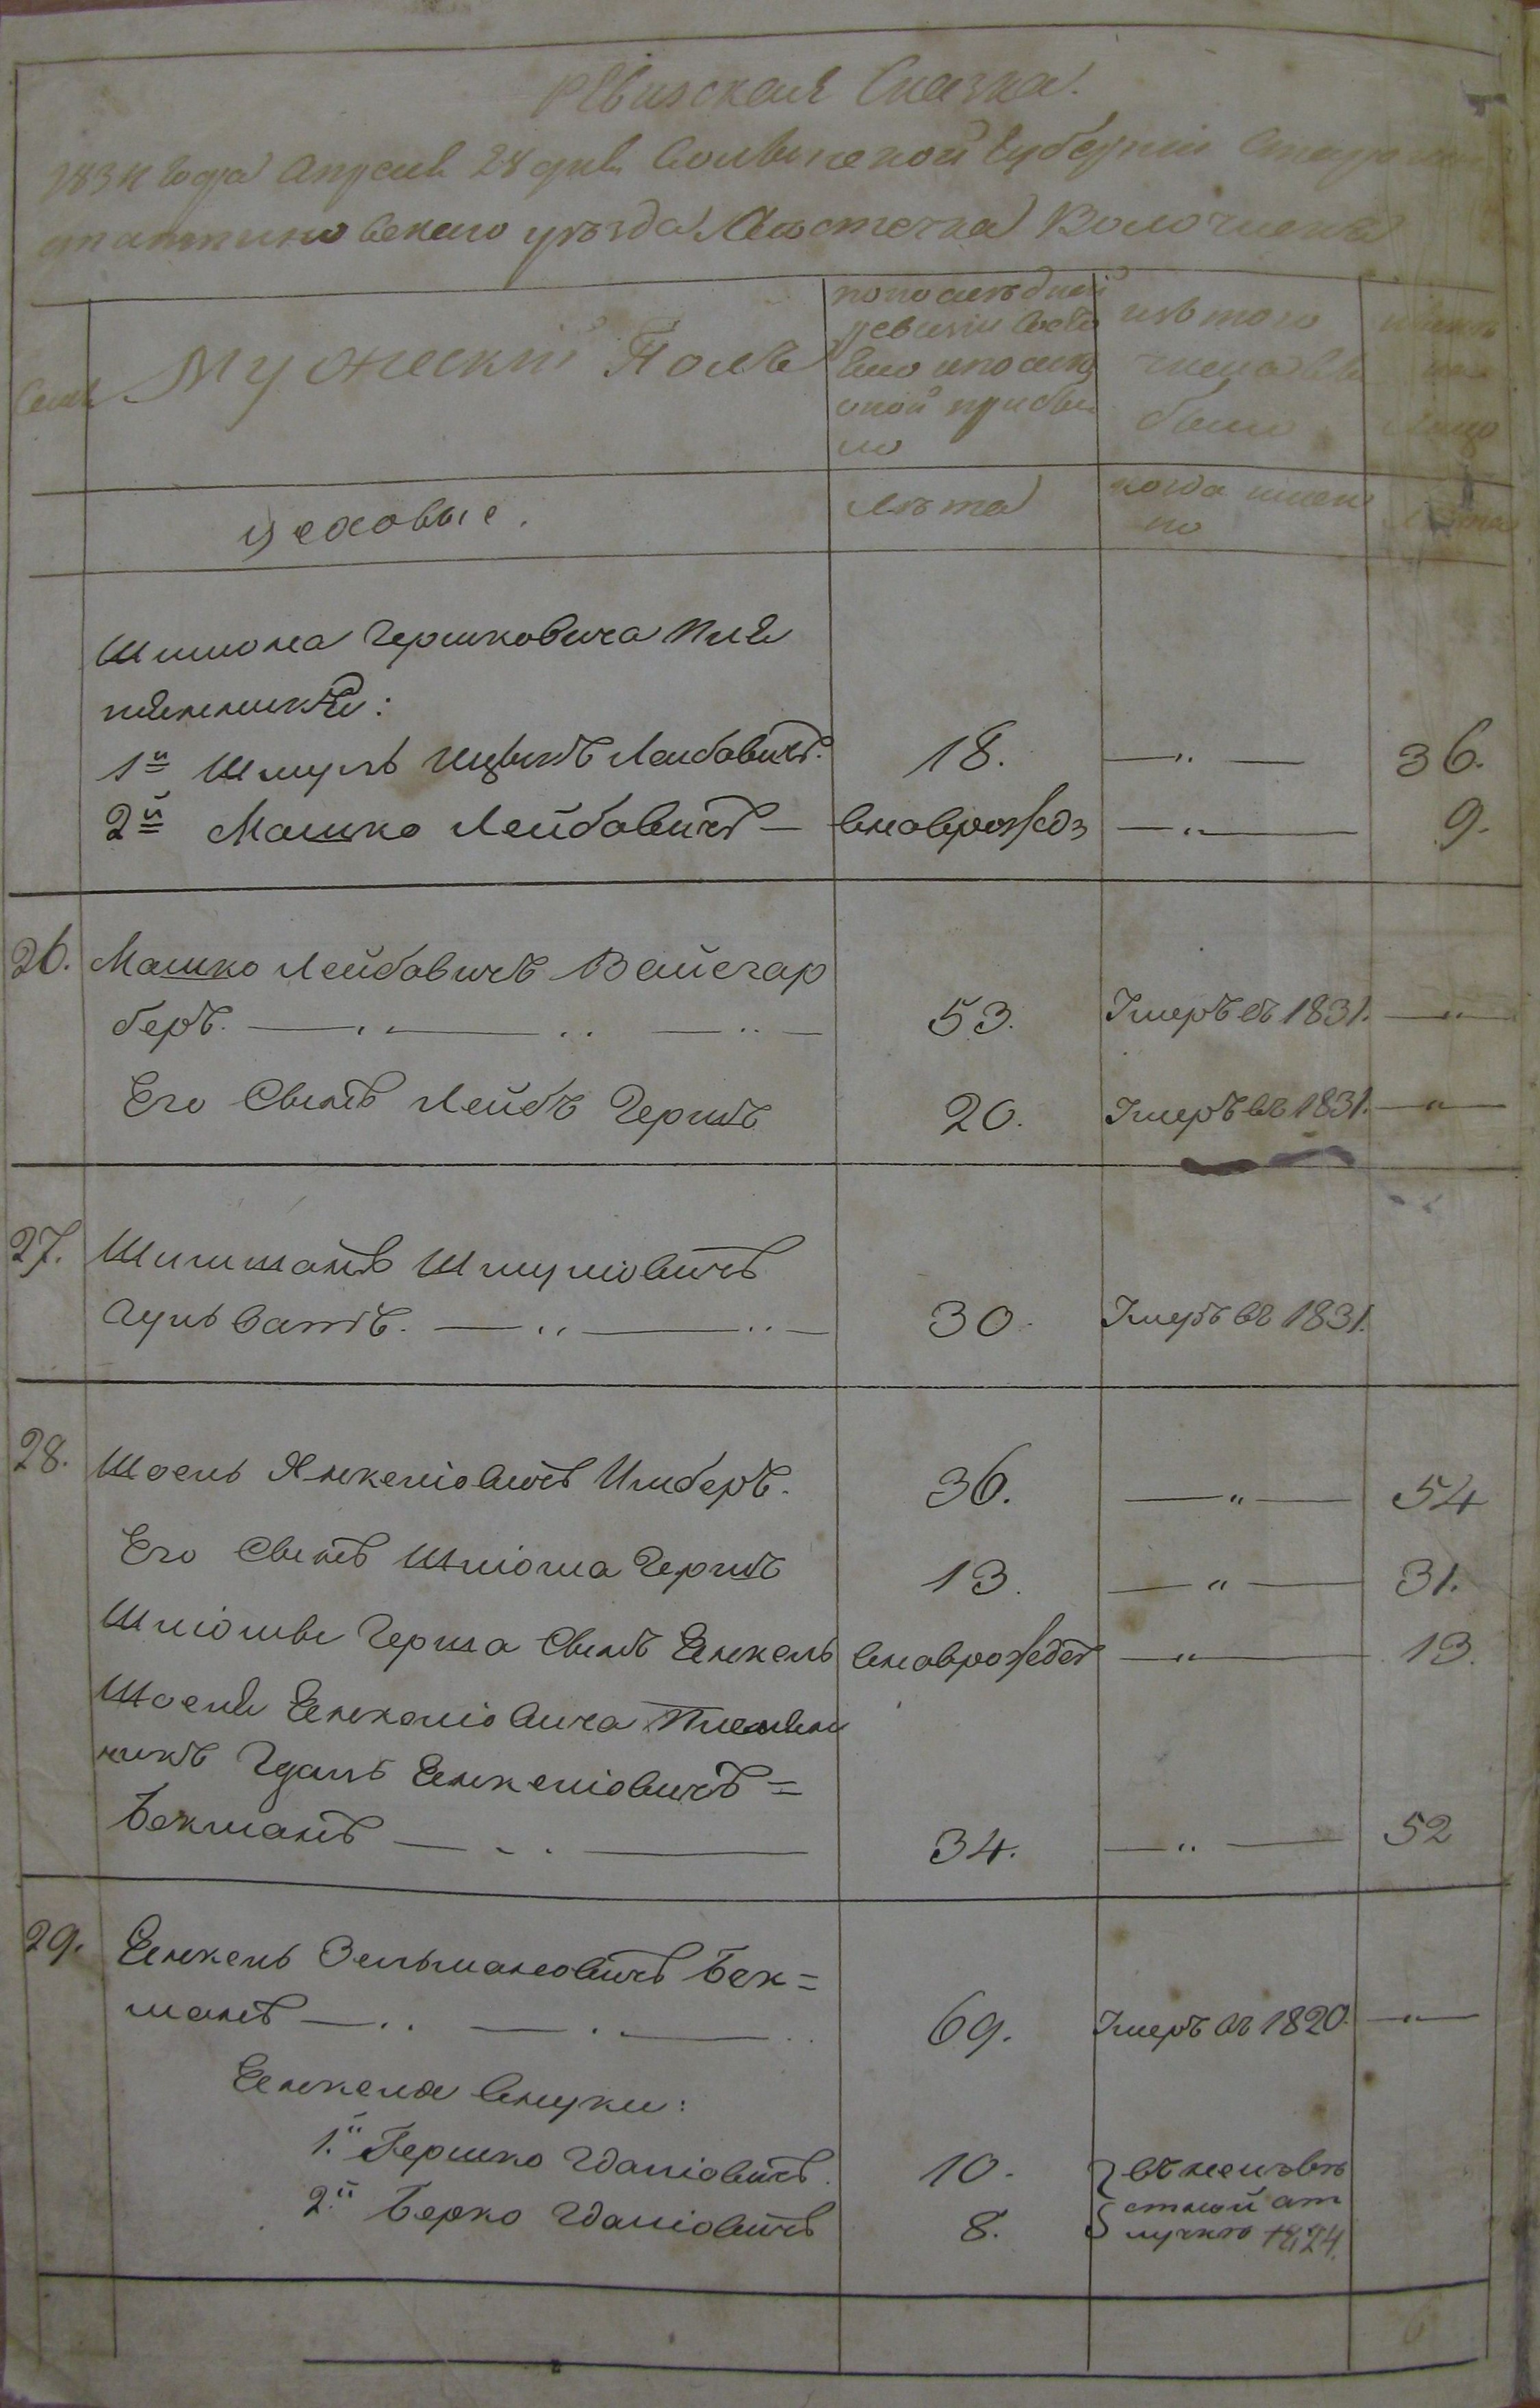 Ревизская Сказка.
1834 года Апреля 28 дня Волынской Губернии Старокон
стантиновскаго уѣзда Мѣстечка Волочиска
Семьи
Мужескій Полъ
попослѣдней
ревизіи состо
яло ипослѣ
оной прибы
ло
изъ того
числа вы
было
нынѣ
на
лицо
цеховые.
лѣта
когда имен
но
лѣта
Шимона Гершковича Пле
мянники:
1й Шмуль Ицыкъ Лейбовичъ. 18. —"— 36.
2й Мошко Лейбовичъ — вновьрожед —"— 9.
26. Мошко Лейбовичъ Вайсгар
беръ. — " — " — " — 53. Умеръ въ 1831. —"—
Его Сынъ Лейбъ Гершъ 20. Умеръ въ 1831. —"—
27. Шишманъ Шмуліовичъ
Гульватъ. — " — " — 30. Умеръ въ 1831.
28. Шоель Янкеліовичъ Имберъ. 36. —"— 54
Его Сынъ Шліома Гершъ 13. —"— 31.
Шліомы Герша Сынъ Енкель вновьрожедет —"— 13.
Шоеля Енкеліовича Племян
никъ Гдаль Енкеліовичъ =
Бекманъ — " — 34. —"— 52
29. Енкель Зельмановичъ Бек=
манъ — " — " — " 69. Умеръ въ 1820. —"—
Енкеля внуки:
1.й Гершко Гдаліовичъ. 10.
2.й Берко Гдаліовичъ 8.
въ неизвѣ
стной от
лучкѣ 1824.